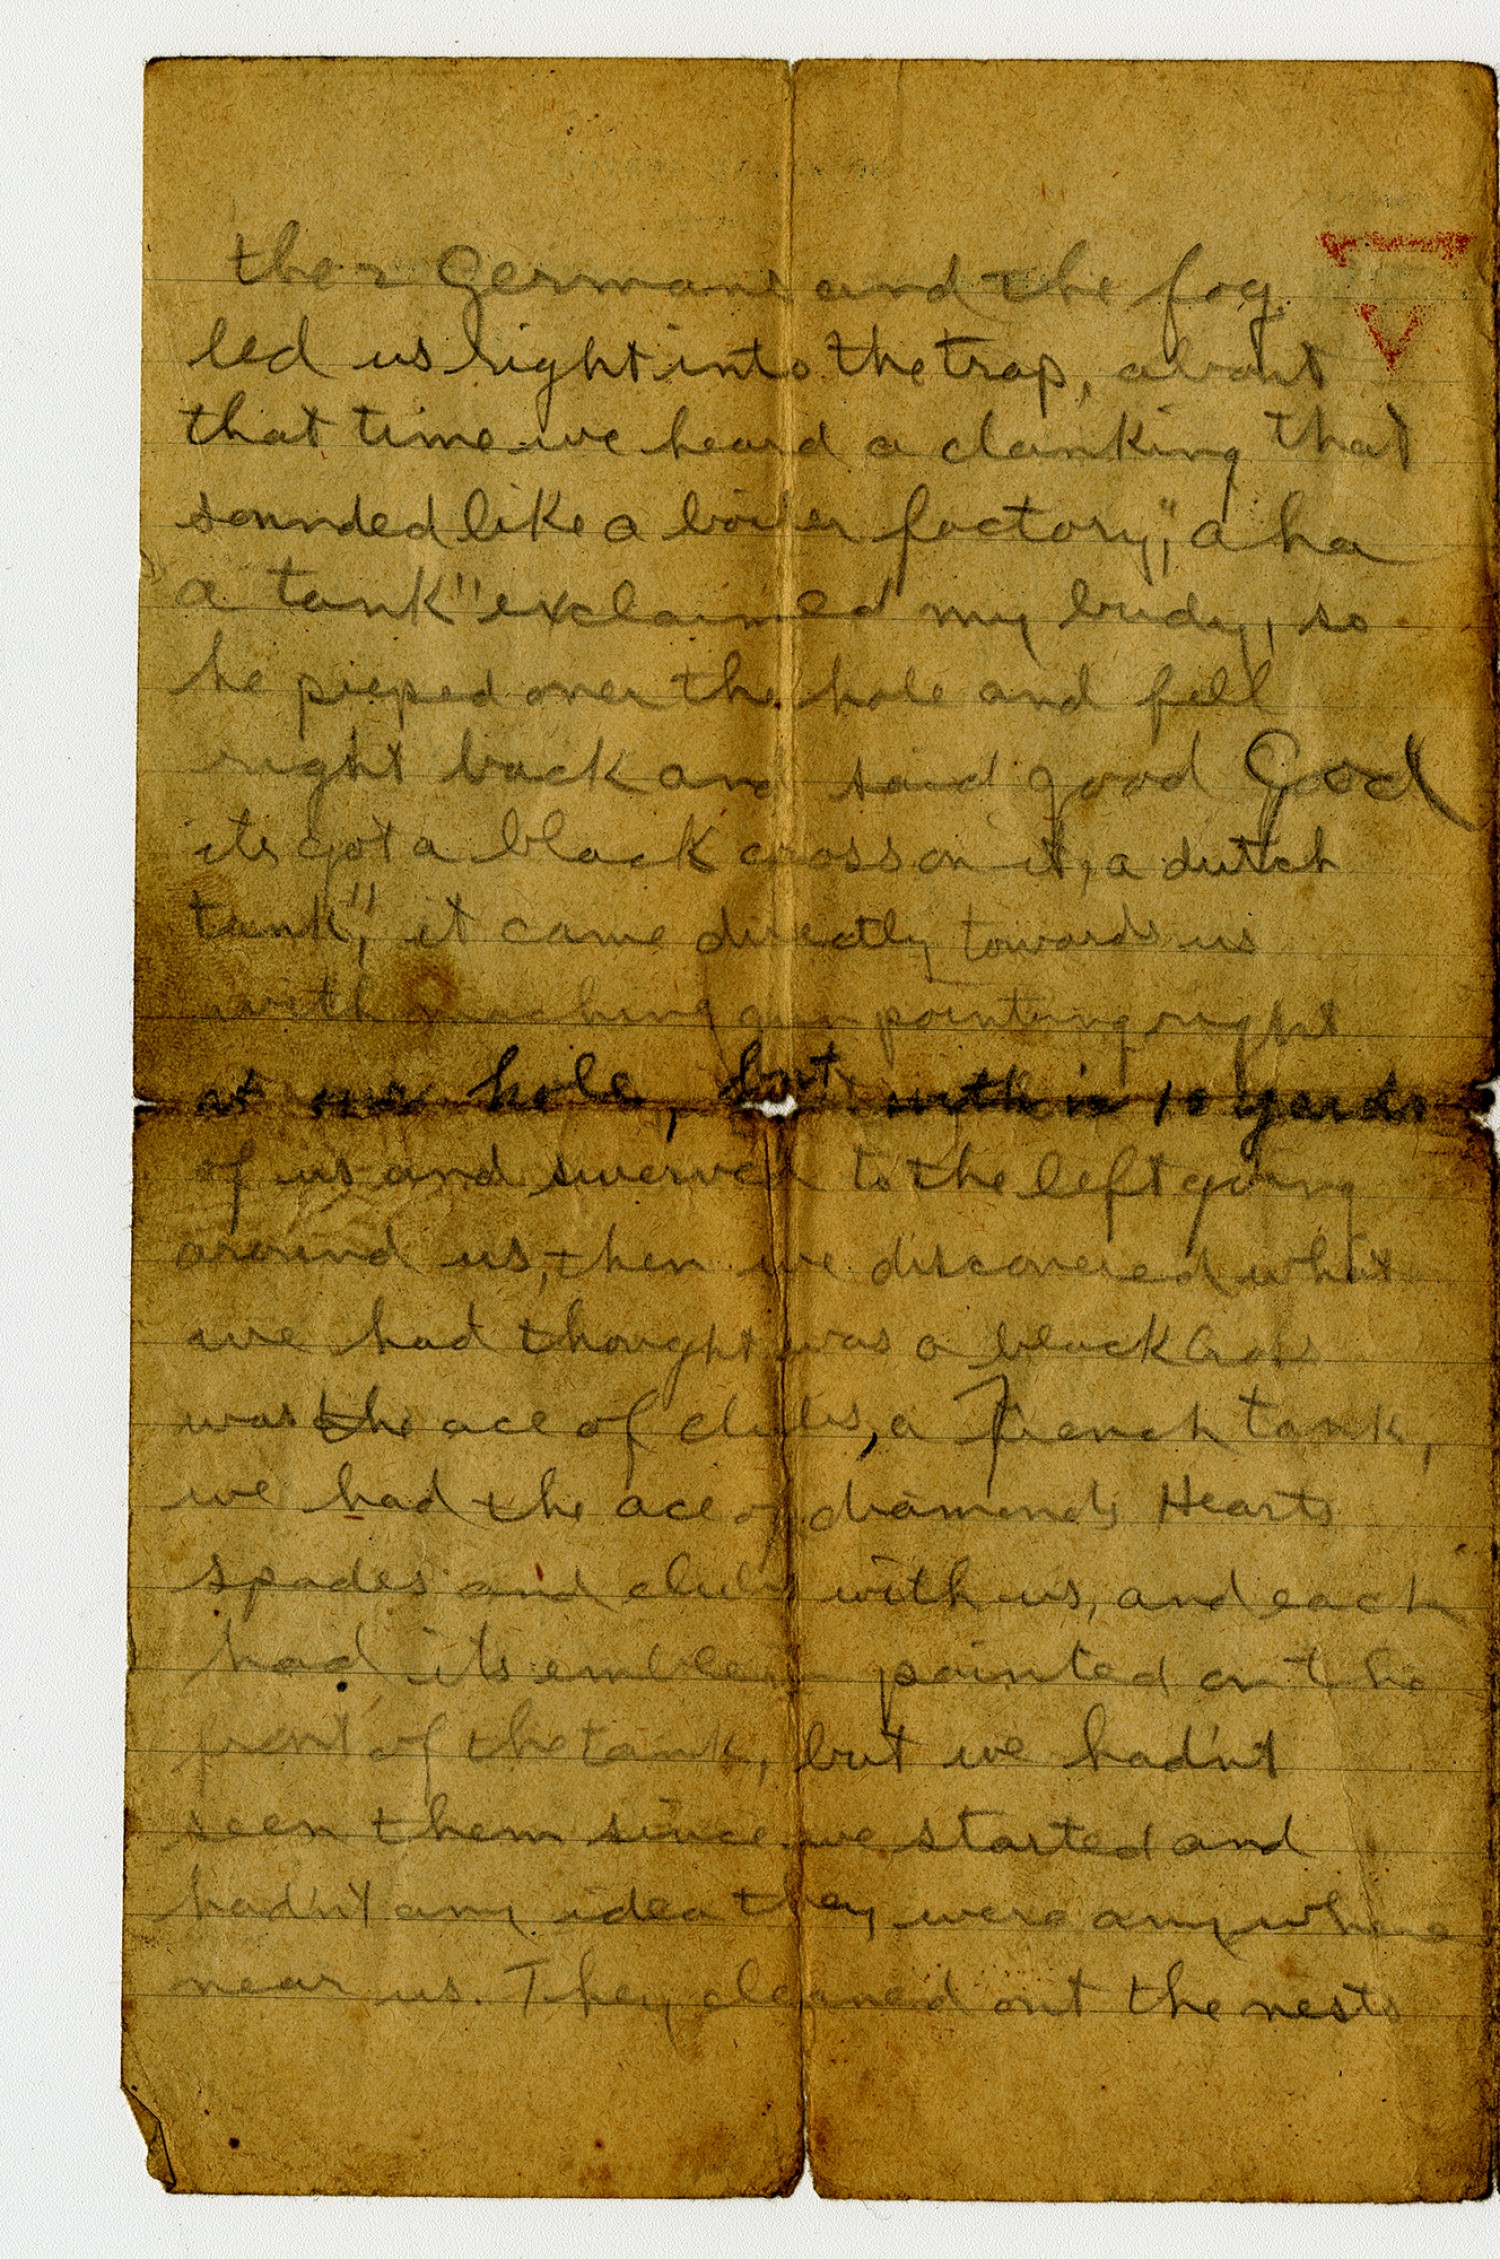 the 2 Germans and the fog
led us right into the trap, about
that time we heard a clanking that
sounded like a boiler factory," a ha
a tank" exclaimed my budy, so
he pieped over the hole and fell
right back and said good God
its got a black cross on it, a dutch
tank", it came directly towards us
with machine gun pointing right
at our hole, but within 10 yards
of us and swerved to the left going
around us, then we discovered what
we had thought was a black cross
was the ace of clubs, a French tank,
we had the ace of diamonds Hearts
spades and clubs with us, and each
had its emblem painted on the
front of the tank, but we hadn't
seen them since we started and
hadn't any idea they were anywhere
near us. They cleaned out the nests